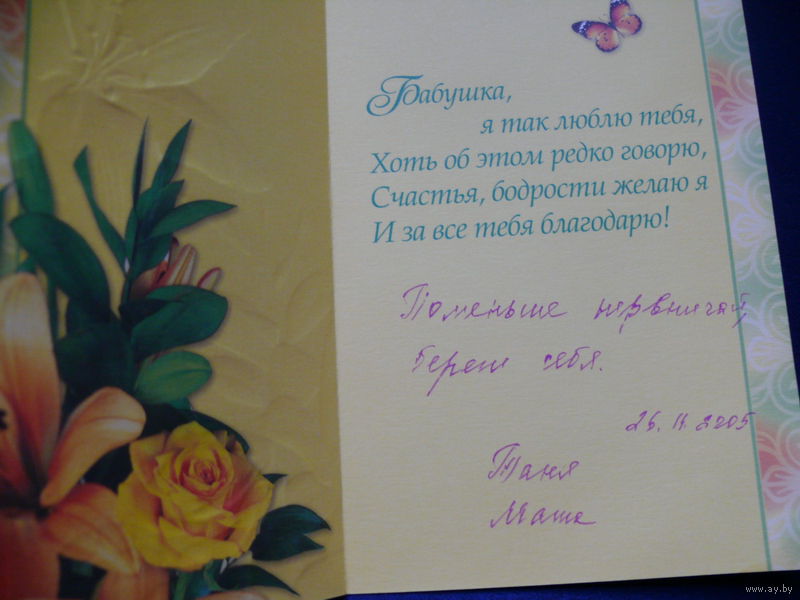 Бабушка,
я так люблю тебя,
Хоть об этом редко говорю,
Счастья, бодрости желаю я
И за все тебя благодарю!
Поменьше нервничай,
береги себя.
26.11.2005
Таня
Маша
www.ay.by